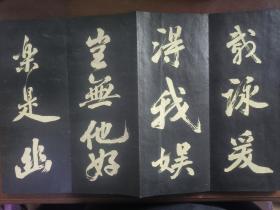 載詠爰
得我娱
豈無他好
樂是幽